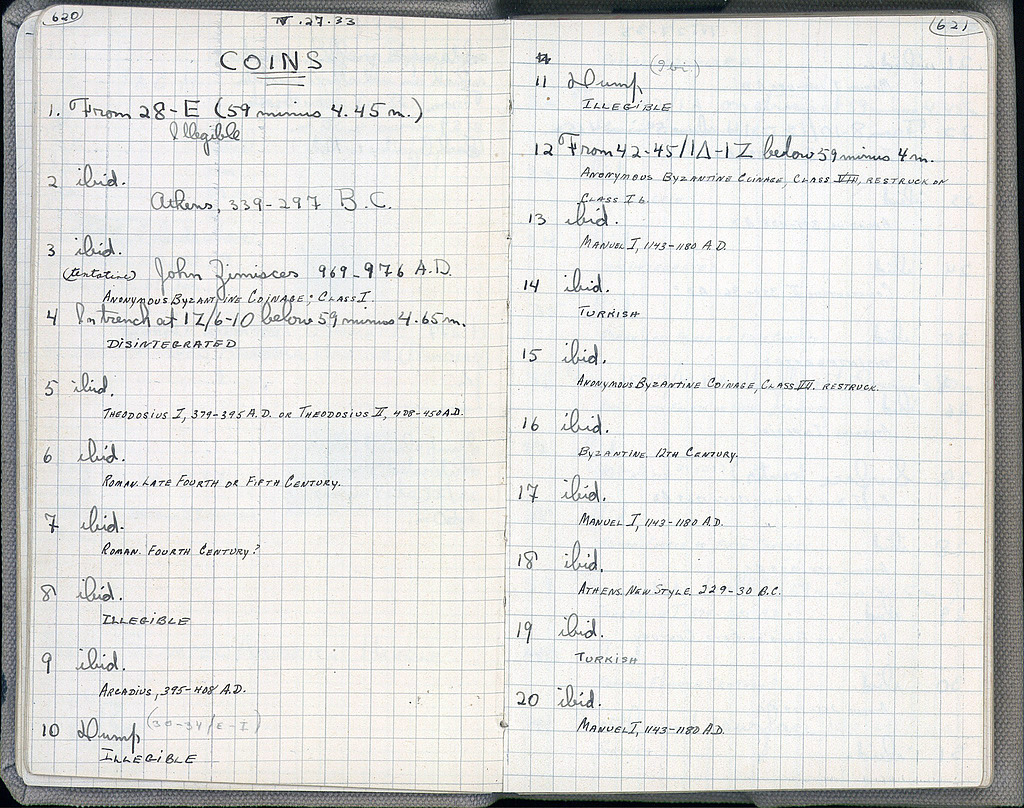 620
IV.27.33
COINS
1. From 28-E (59 minus 4.45 m.)
Illegible
2 ibid.
Athens, 339-297 B.C.
3 ibid.
(tentative) John Zimisces 969-976 A.D.
Anonymous Byzantine Coinage; Class I.
4 In trench at IZ/6-10 below 59 minus 4.65 m.
DISINTEGRATED
5 ibid.
THEODOSIUS I, 379-395 A.D. OR THEODOSIUS II, 408-450 A.D.
6 ibid.
ROMAN. LATE FOURTH OR FIFTH CENTURY.
7 ibid.
ROMAN. FOURTH CENTURY?
8 ibid.
ILLEGIBLE
9 ibid.
ARCADIUS, 395-408 A.D.
10 Dump (30-34/E-I)
ILLEGIBLE
621
11 Dump
ILLEGIBLE
12 From 42-45/IΔ-IZ below 59 minus 4m.
ANONYMOUS BYZANTINE COINAGE, CLASS VIII, RESTRUCK ON
CLASS I b.
13 ibid.
MANUEL I, 1143-1180 A.D.
14 ibid.
TURKISH
15 ibid.
ANONYMOUS BYZANTINE COINAGE, CLASS RESTRUCK.
16 ibid.
BYZANTINE. 12TH CENTURY.
17 ibid.
MANUEL I, 1143-1180 A.D.
18 ibid.
ATHENS. NEW STYLE. 229-30 B.C.
19 ibid.
TURKISH
20 ibid.
MANUEL I, 1143-1180 A.D.